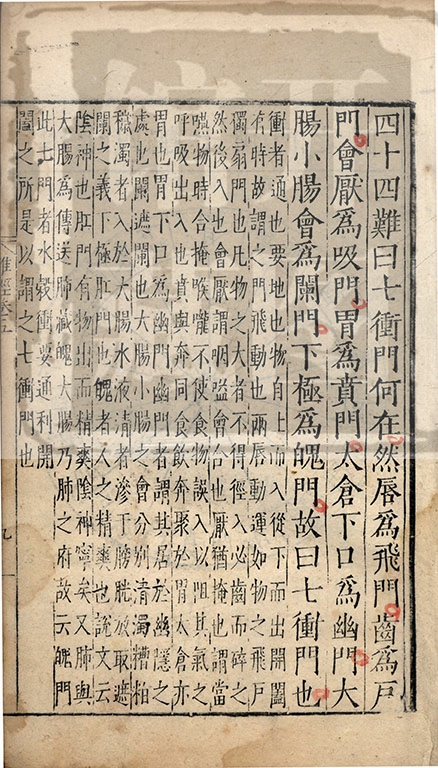 四十四難曰七衝門何在然唇爲飛門齒爲戶
門會厭爲吸門胃爲賁門太倉下口爲幽門大
腸小腸會爲闌門下極爲魄門故曰七衝門也
衝者通也要地也物自上而入從下而出開闔
有時故謂之門飛動也兩唇動運如物之飛戶
獨扇門也凡物之大者不得徑入必齒而碎之
然後入也會厭謂咽嗌會合也厭猶掩也謂當
嚥物時合掩喉嚨不使食物誤入以阻其氣之
呼吸出入也賁與奔同食飲奔聚於胃太倉亦
胃也胃下口爲幽門幽門者謂其居於幽隱之
處也闌遮闌也大腸小腸之會分別清濁糟粕
穢濁者入於大腸水液清者滲于膀胱故取遮
闌之義下極肛門也魄者人之精爽也說文云
陰神也肛門有物出而精爽陰神寧矣又肺與
大腸爲傳送肺藏魄大腸乃肺之府故云魄門
此七門者水穀衝要通利開
闔之所是以謂之七衝門也
難經卷五
九